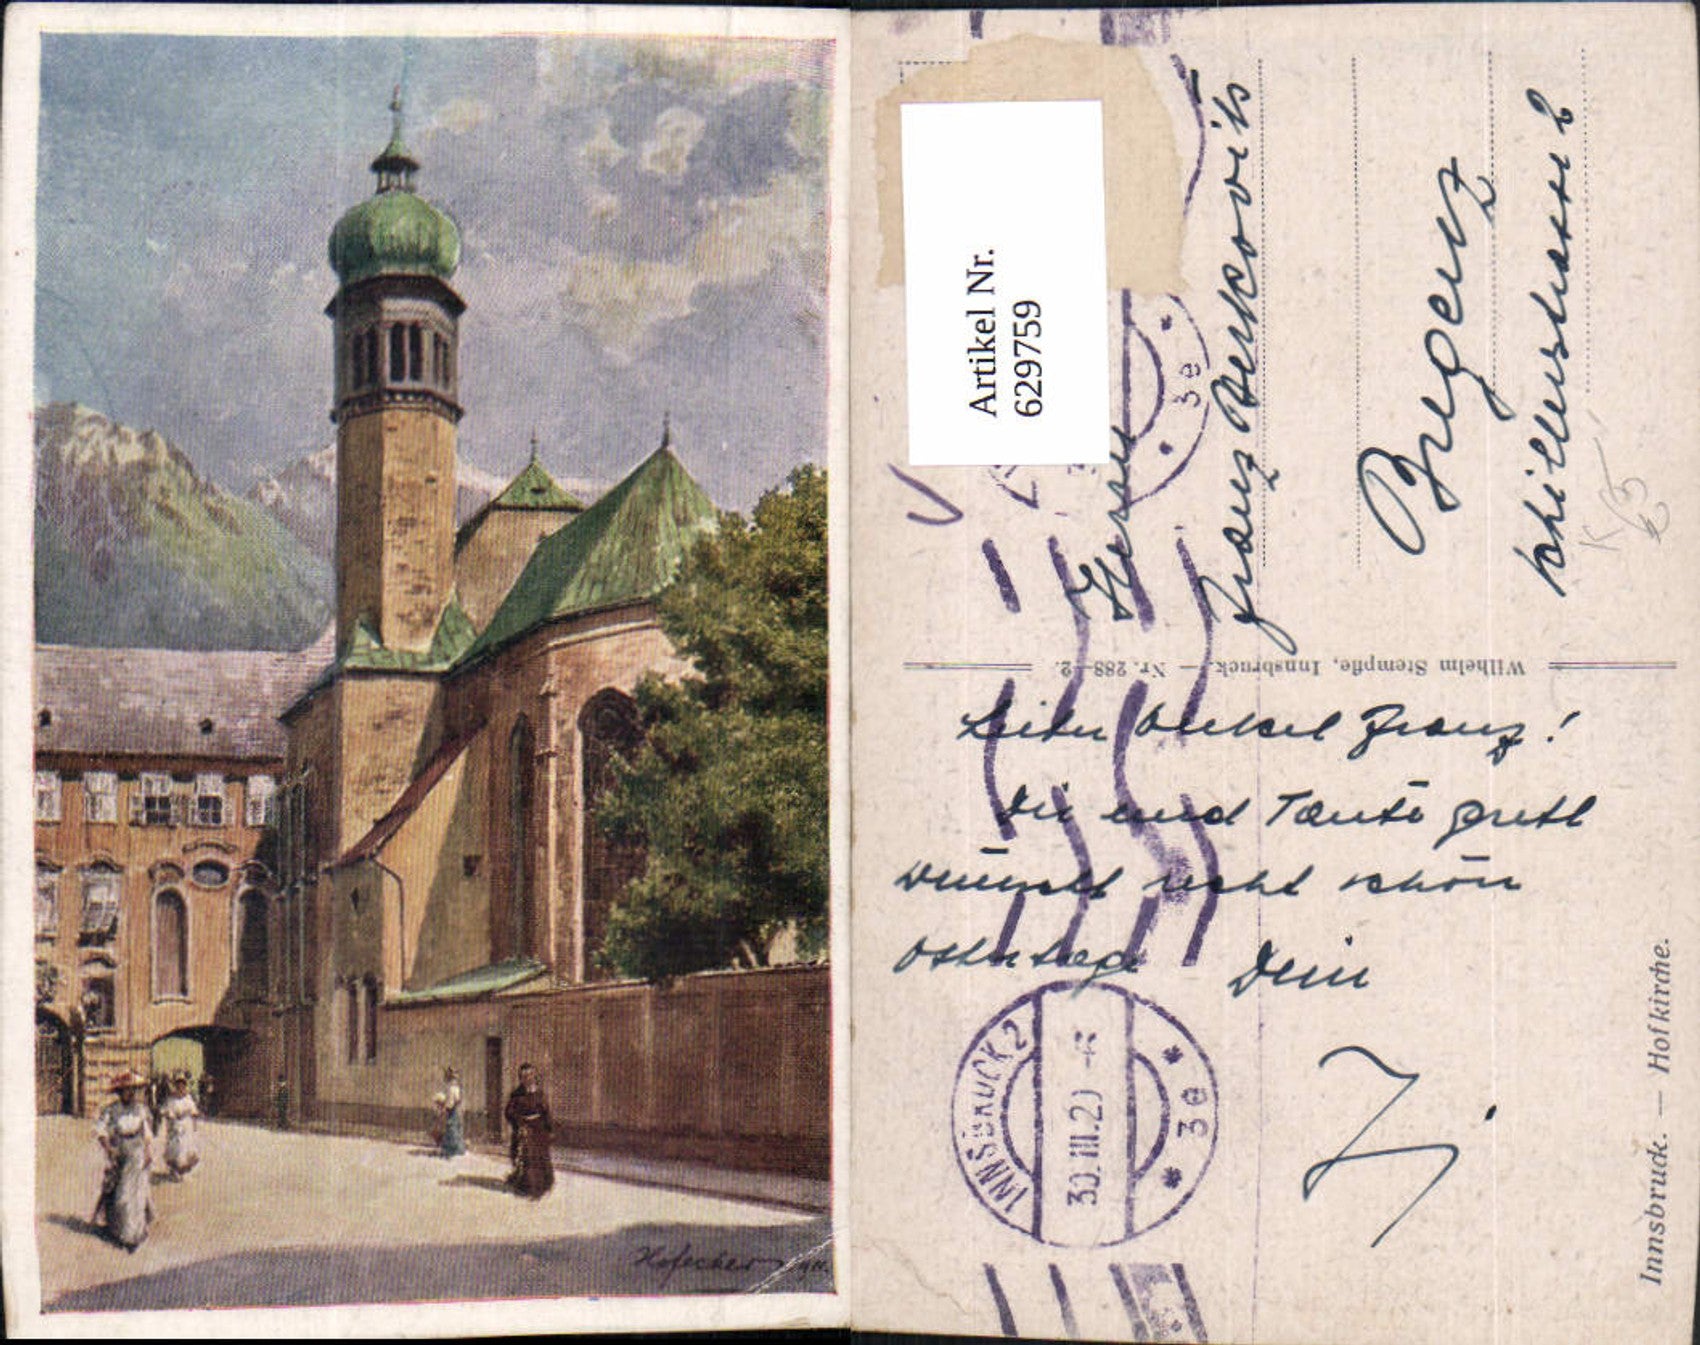 Hofecher 1911.
Artikel Nr.
629759
Herrn
Franz Berkovits
Bregenz
Schillerstrasse 2
K
Wilhelm Stempfle, Innsbruck. — Nr. 288—2.
Lieber Onkel Franz!
Dir und Tante Gretl
wünscht recht schöne
Ostertage Dein
INNSBRUCK 2
30.III.20
* 3e *
3e
Innsbruck. — Hofkirche.